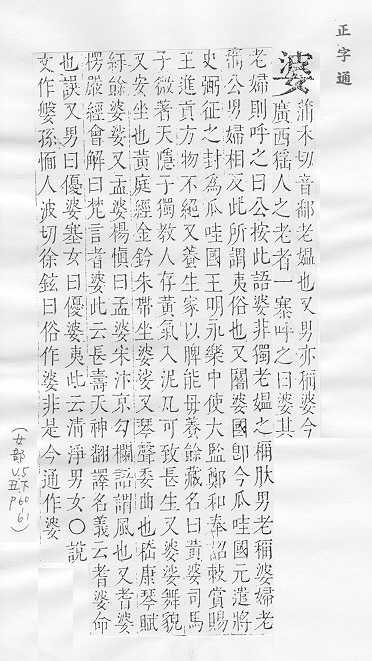 正字通
婆
蒲禾切音鄱老媼也又男亦稱婆今
廣西猺人之老者一寨呼之曰婆其
老婦則呼之曰公按此語婆非獨老媼之稱朕男老稱婆婦老
稱公男婦相反此所謂夷俗也又闍婆國卽今瓜哇國元遣將
史弼征之封為瓜哇國王明永樂中使大監鄭和奉詔敕賞賜
王進貢方物不絕又養生家以脾能毋養餘藏名曰黃婆司馬
子微著天隱子獨教人存黃氣入泥凡可致長生又婆娑舞貌
又安坐也黃庭經金鈐朱帶坐婆娑又琴聲委曲也嵇康琴賦
紆餘婆娑又孟婆楊愼曰孟婆宋汴京勾欄語謂風也又耆婆
楞嚴經會解曰梵言耆婆此云長壽天神翻譯名義云耆婆命
也誤又男曰優婆塞女曰優婆夷此云淸淨男女〇說
文作媻孫愐人波切徐鉉曰俗作婆非是今通作婆
(女部
V.5
丑下
p60
61)